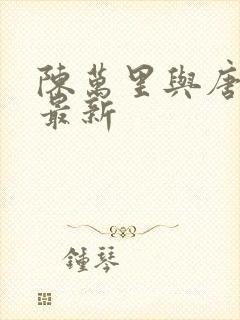 陳萬里與唐
最新
鍾琴